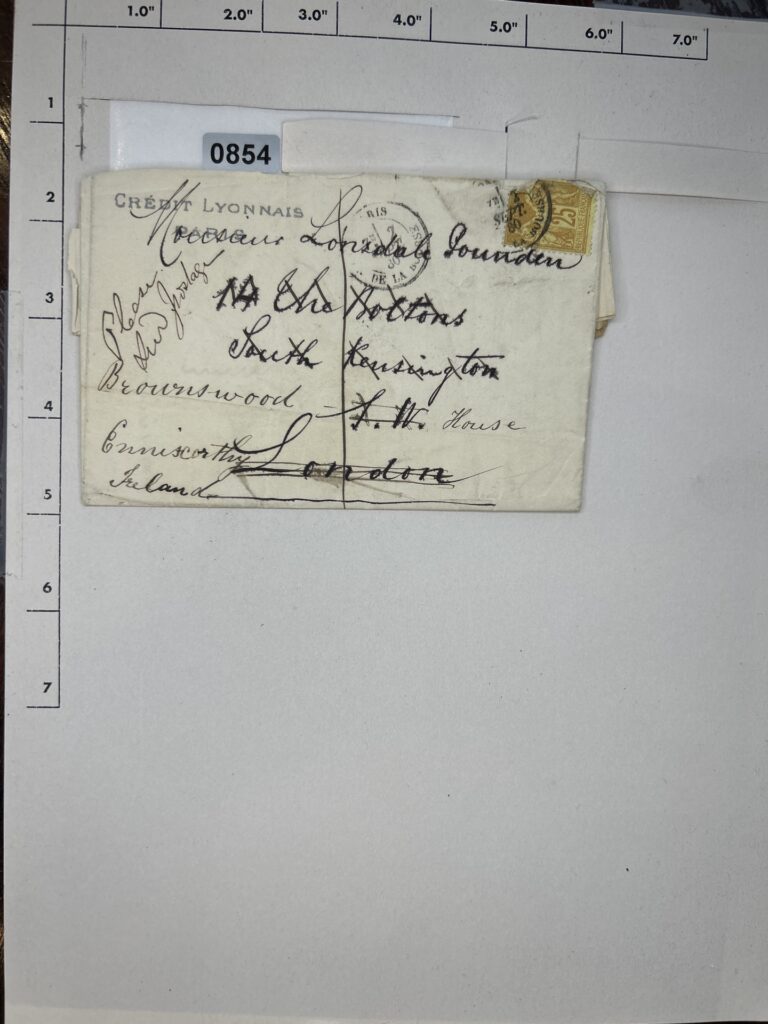 1.0" 2.0" 3.0" 4.0" 5.0" 6.0" 7.0"
1
2
3
4
5
6
7
0854
CRÉDIT LYONNAIS
PARIS
Monsieur Lonsdale Pounden
14 The Boltons
South Kensington
S.W.
London
Please
Brownswood House
Enniscorthy
Ireland
PARIS
DE LA BOURSE
SEPT.
25